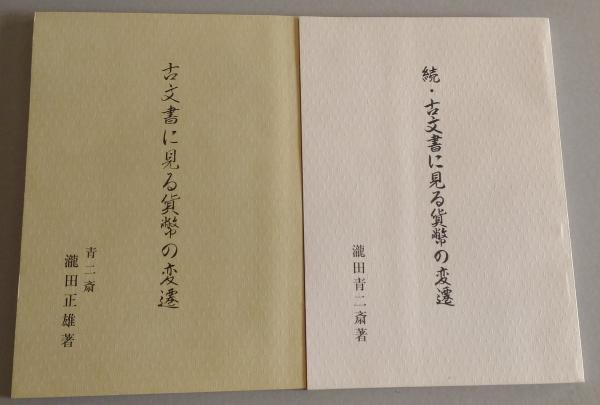 古文書に見る貨幣の変遷
青二斎
瀧田正雄著
続・古文書に見る貨幣の変遷
瀧田青二斎著